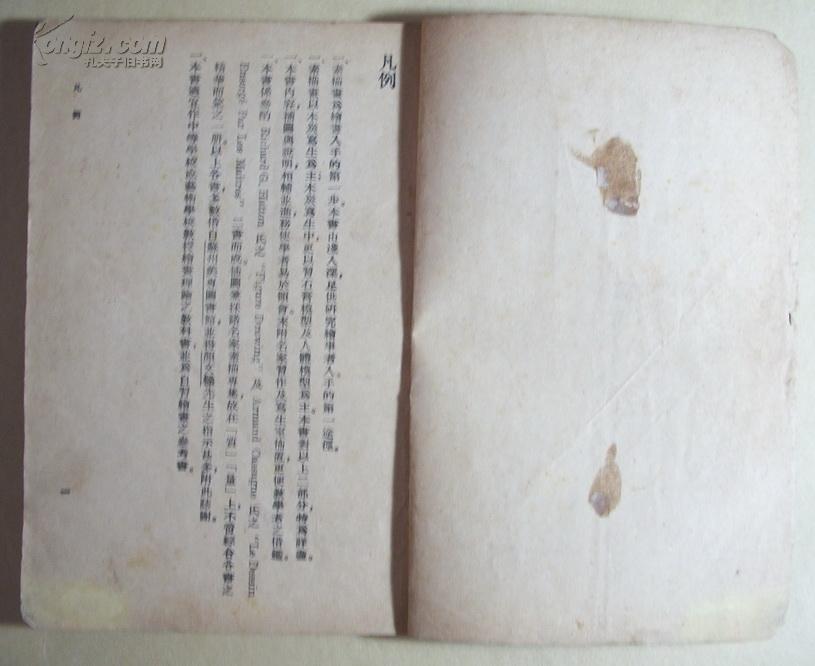 凡例
一、素描畫爲繪畫入手的第一步本書由淺入深足供研究繪畫者入手的第一途徑。
一、素描畫以木炭寫生爲主木炭寫生中更以習石膏模型及人體模型爲主本書對以上二部分特爲詳盡。
一、本書內容插圖與說明相輔並進務使學者易於領會末附名家習作及寫生室佈置更便教學者之借鑑
一、本書係參酌 Richard G. Hatton 氏之 "Figure Drawing" 及 Armand Cassagne 氏之 "Le Dessin
Enseigé Par Les Maîtres" 二書而成插圖兼採諸名家素描專集故在「質」「量」上不啻綜合各書之
精華而彙之一册以上各書多數借自蘇州美專圖書館並得顏文樑先生之指示甚多附此誌謝
一、本書適宜作中等學校或藝術學校教授繪畫理論之教科書並爲自習繪畫之參考書。
凡例
一
Kongfz.com
孔夫子旧书网